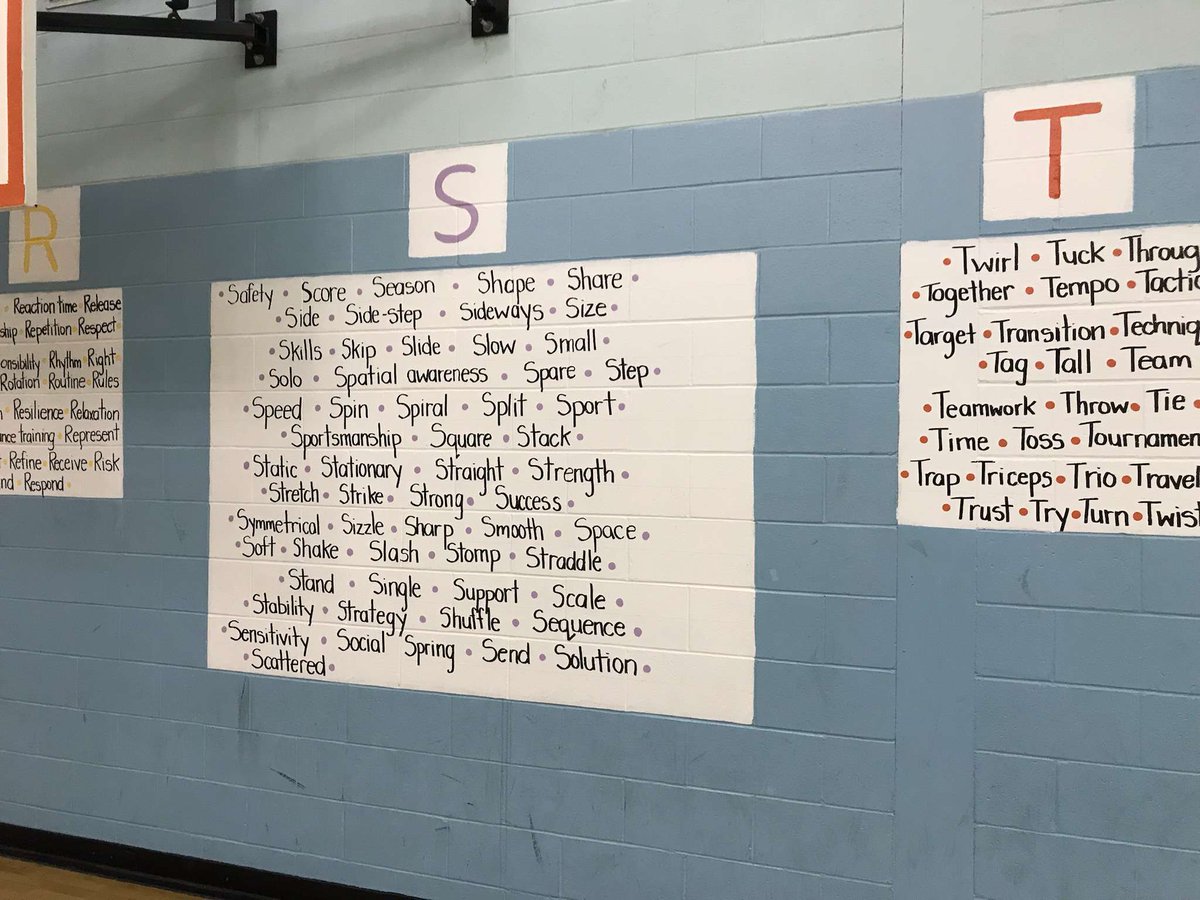 R
Reaction time • Release
Repetition • Respect •
Rhythm • Right
Rotation • Routine • Rules
• Resilience • Relaxation
training • Represent
• Refine • Receive • Risk
• Respond •
S
• Safety • Score • Season • Shape • Share •
• Side • Side-step • Sideways • Size •
• Skills • Skip • Slide • Slow • Small •
• Solo • Spatial awareness • Spare • Step •
• Speed • Spin • Spiral • Split • Sport •
• Sportsmanship • Square • Stack •
• Static • Stationary • Straight • Strength •
• Stretch • Strike • Strong • Success •
• Symmetrical • Sizzle • Sharp • Smooth • Space •
• Soft • Shake • Slash • Stomp • Straddle •
• Stand • Single • Support • Scale •
• Stability • Strategy • Shuffle • Sequence •
• Sensitivity • Social • Spring • Send • Solution •
• Scattered •
T
• Twirl • Tuck • Throug
• Together • Tempo • Tactic
• Target • Transition • Techniq
• Tag • Tall • Team
• Teamwork • Throw • Tie •
• Time • Toss • Tournamen
• Trap • Triceps • Trio • Travel
• Trust • Try • Turn • Twist